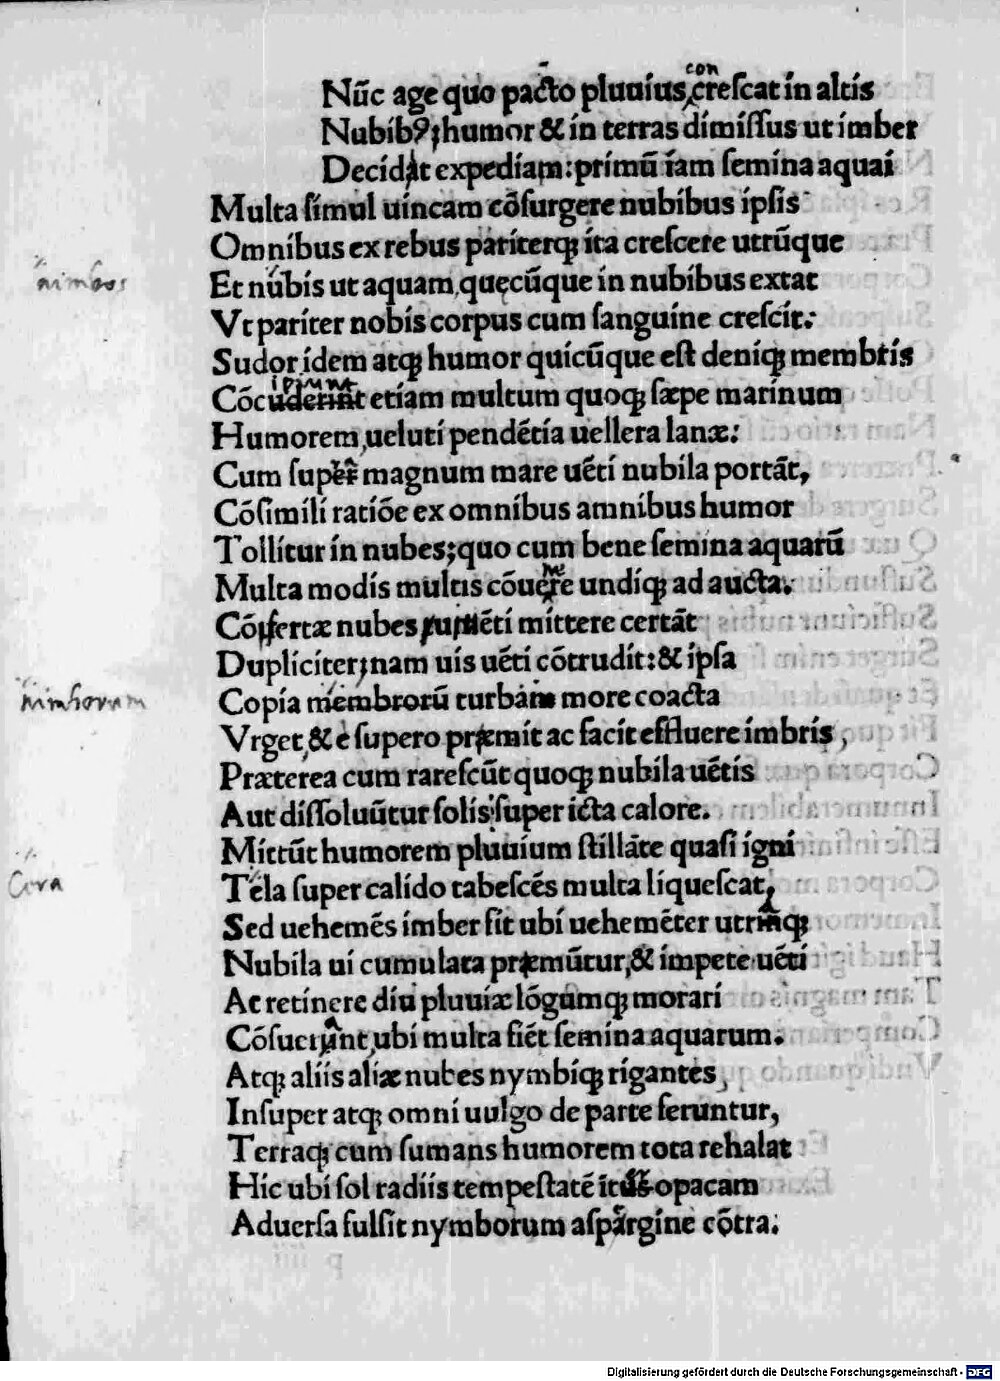 con
Nūc age quo pacto pluuius crescat in altis
Nubibꝰ; humor & in terras dimissus ut imber
Decidat expediam: primū iam semina aquai
Multa simul uincam cōsurgere nubibus ipsis
Omnibus ex rebus pariterq; ita crescere utrūque
nimbos
Et nubis ut aquam, quęcūque in nubibus extat
Vt pariter nobis corpus cum sanguine crescit:
Sudor idem atq; humor quicūque est deniq; membris
Cōcuderint etiam multum quoq; sæpe marinum
Humorem, ueluti pendētia uellera lanæ:
Cum super magnum mare uēti nubila portāt,
Cōsimili ratiōe ex omnibus amnibus humor
Tollitur in nubes; quo cum bene semina aquarū
Multa modis multis cōuere undiq; ad aucta.
nubes mittere certāt
Dupliciter; nam uis uēti cōtrudit: & ipsa
nimborum
Copia membrorū turbam more coacta
Vrget, & e supero præmit ac facit effluere imbris,
Præterea cum rarescūt quoq; nubila uētis
Aut dissoluūtur solis super icta calore.
Mittūt humorem pluuium stillāte quasi igni
Cera
Tela super calido tabescēs multa liquescat,
Sed uehemēs imber fit ubi uehemēter utrinq;
Nubila ui cumulata præmūtur, & impete uēti
At retinere diu pluuiæ lōgumq; morari
Cōsuerunt, ubi multa fiēt semina aquarum.
Atq; aliis aliæ nubes nymbiq; rigantes,
Insuper atq; omni uulgo de parte feruntur,
Terraq; cum fumans humorem tota rehalat
Hic ubi sol radiis tempestatē opacam
Aduersa fulsit nymborum aspargine cōtra.
Digitalisierung gefördert durch die Deutsche Forschungsgemeinschaft - DFG